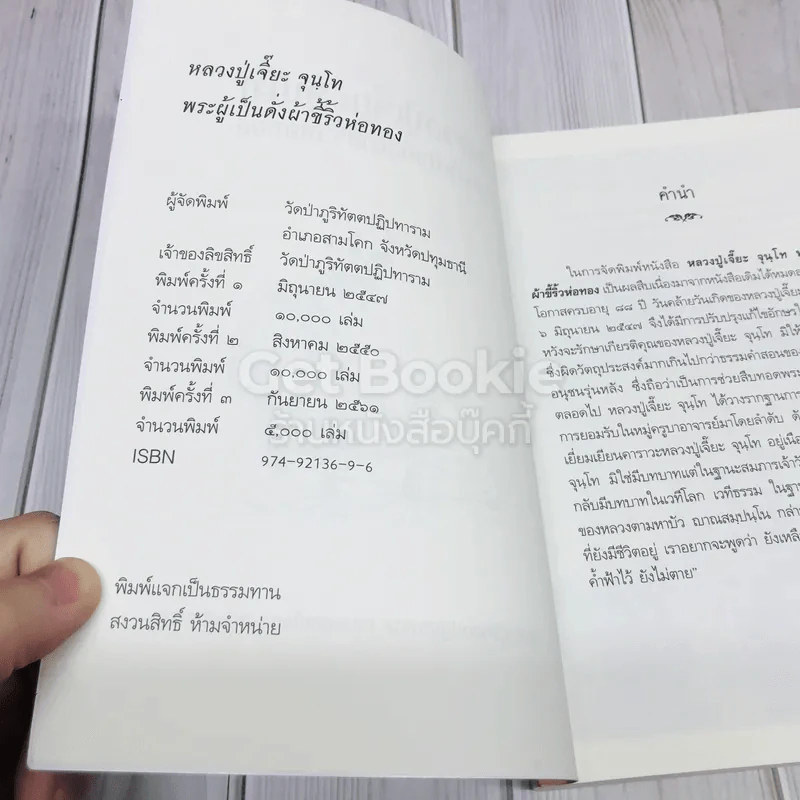 หลวงปู่เจี๊ยะ จุนฺโท
พระผู้เป็นดั่งผ้าขี้ริ้วห่อทอง
ผู้จัดพิมพ์ วัดป่าภูริทัตตปฏิปทาราม
อำเภอสามโคก จังหวัดปทุมธานี
เจ้าของลิขสิทธิ์ วัดป่าภูริทัตตปฏิปทาราม
พิมพ์ครั้งที่ ๑ มิถุนายน ๒๕๔๗
จำนวนพิมพ์ ๑๐,๐๐๐ เล่ม
พิมพ์ครั้งที่ ๒ สิงหาคม ๒๕๕๐
จำนวนพิมพ์ ๑๐,๐๐๐ เล่ม
พิมพ์ครั้งที่ ๓ กันยายน ๒๕๖๑
จำนวนพิมพ์ ๕,๐๐๐ เล่ม
ISBN 974-92136-9-6
พิมพ์แจกเป็นธรรมทาน
สงวนสิทธิ์ ห้ามจำหน่าย
คำนำ
ในการจัดพิมพ์หนังสือ หลวงปู่เจี๊ยะ จุนฺโท
ผ้าขี้ริ้วห่อทอง เป็นผลสืบเนื่องมาจากหนังสือเดิมได้หมด
โอกาสครบอายุ ๘๘ ปี วันคล้ายวันเกิดของหลวงปู่เจี๊ยะ
๖ มิถุนายน ๒๕๔๗ จึงได้มีการปรับปรุงแก้ไขอักษร
หวังจะรักษาเกียรติคุณของหลวงปู่เจี๊ยะ จุนฺโท มิให้
ซึ่งผิดวัตถุประสงค์มากเกินไปกว่าธรรมคำสอนของ
อนุชนรุ่นหลัง ซึ่งถือว่าเป็นการช่วยสืบทอดพระ
ตลอดไป หลวงปู่เจี๊ยะ จุนฺโท ได้วางรากฐาน
การยอมรับในหมู่ครูบาอาจารย์มาโดยลำดับ
เยี่ยมเยียนคาราวะหลวงปู่เจี๊ยะ จุนฺโท อยู่เนือ
จุนฺโท มิใช่มีบทบาทแต่ในฐานะสมภารเจ้าวั
กลับมีบทบาทในเวทีโลก เวทีธรรม ในฐาน
ของหลวงตามหาบัว ญาณสมฺปนฺโน กล่า
ที่ยังมีชีวิตอยู่ เราอยากจะพูดว่า ยังเหลื
ค้ำฟ้าไว้ ยังไม่ตาย"
Get Bookie
ร้านหนังสือบุ๊คกี้